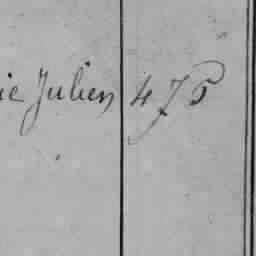 ie Julien 475